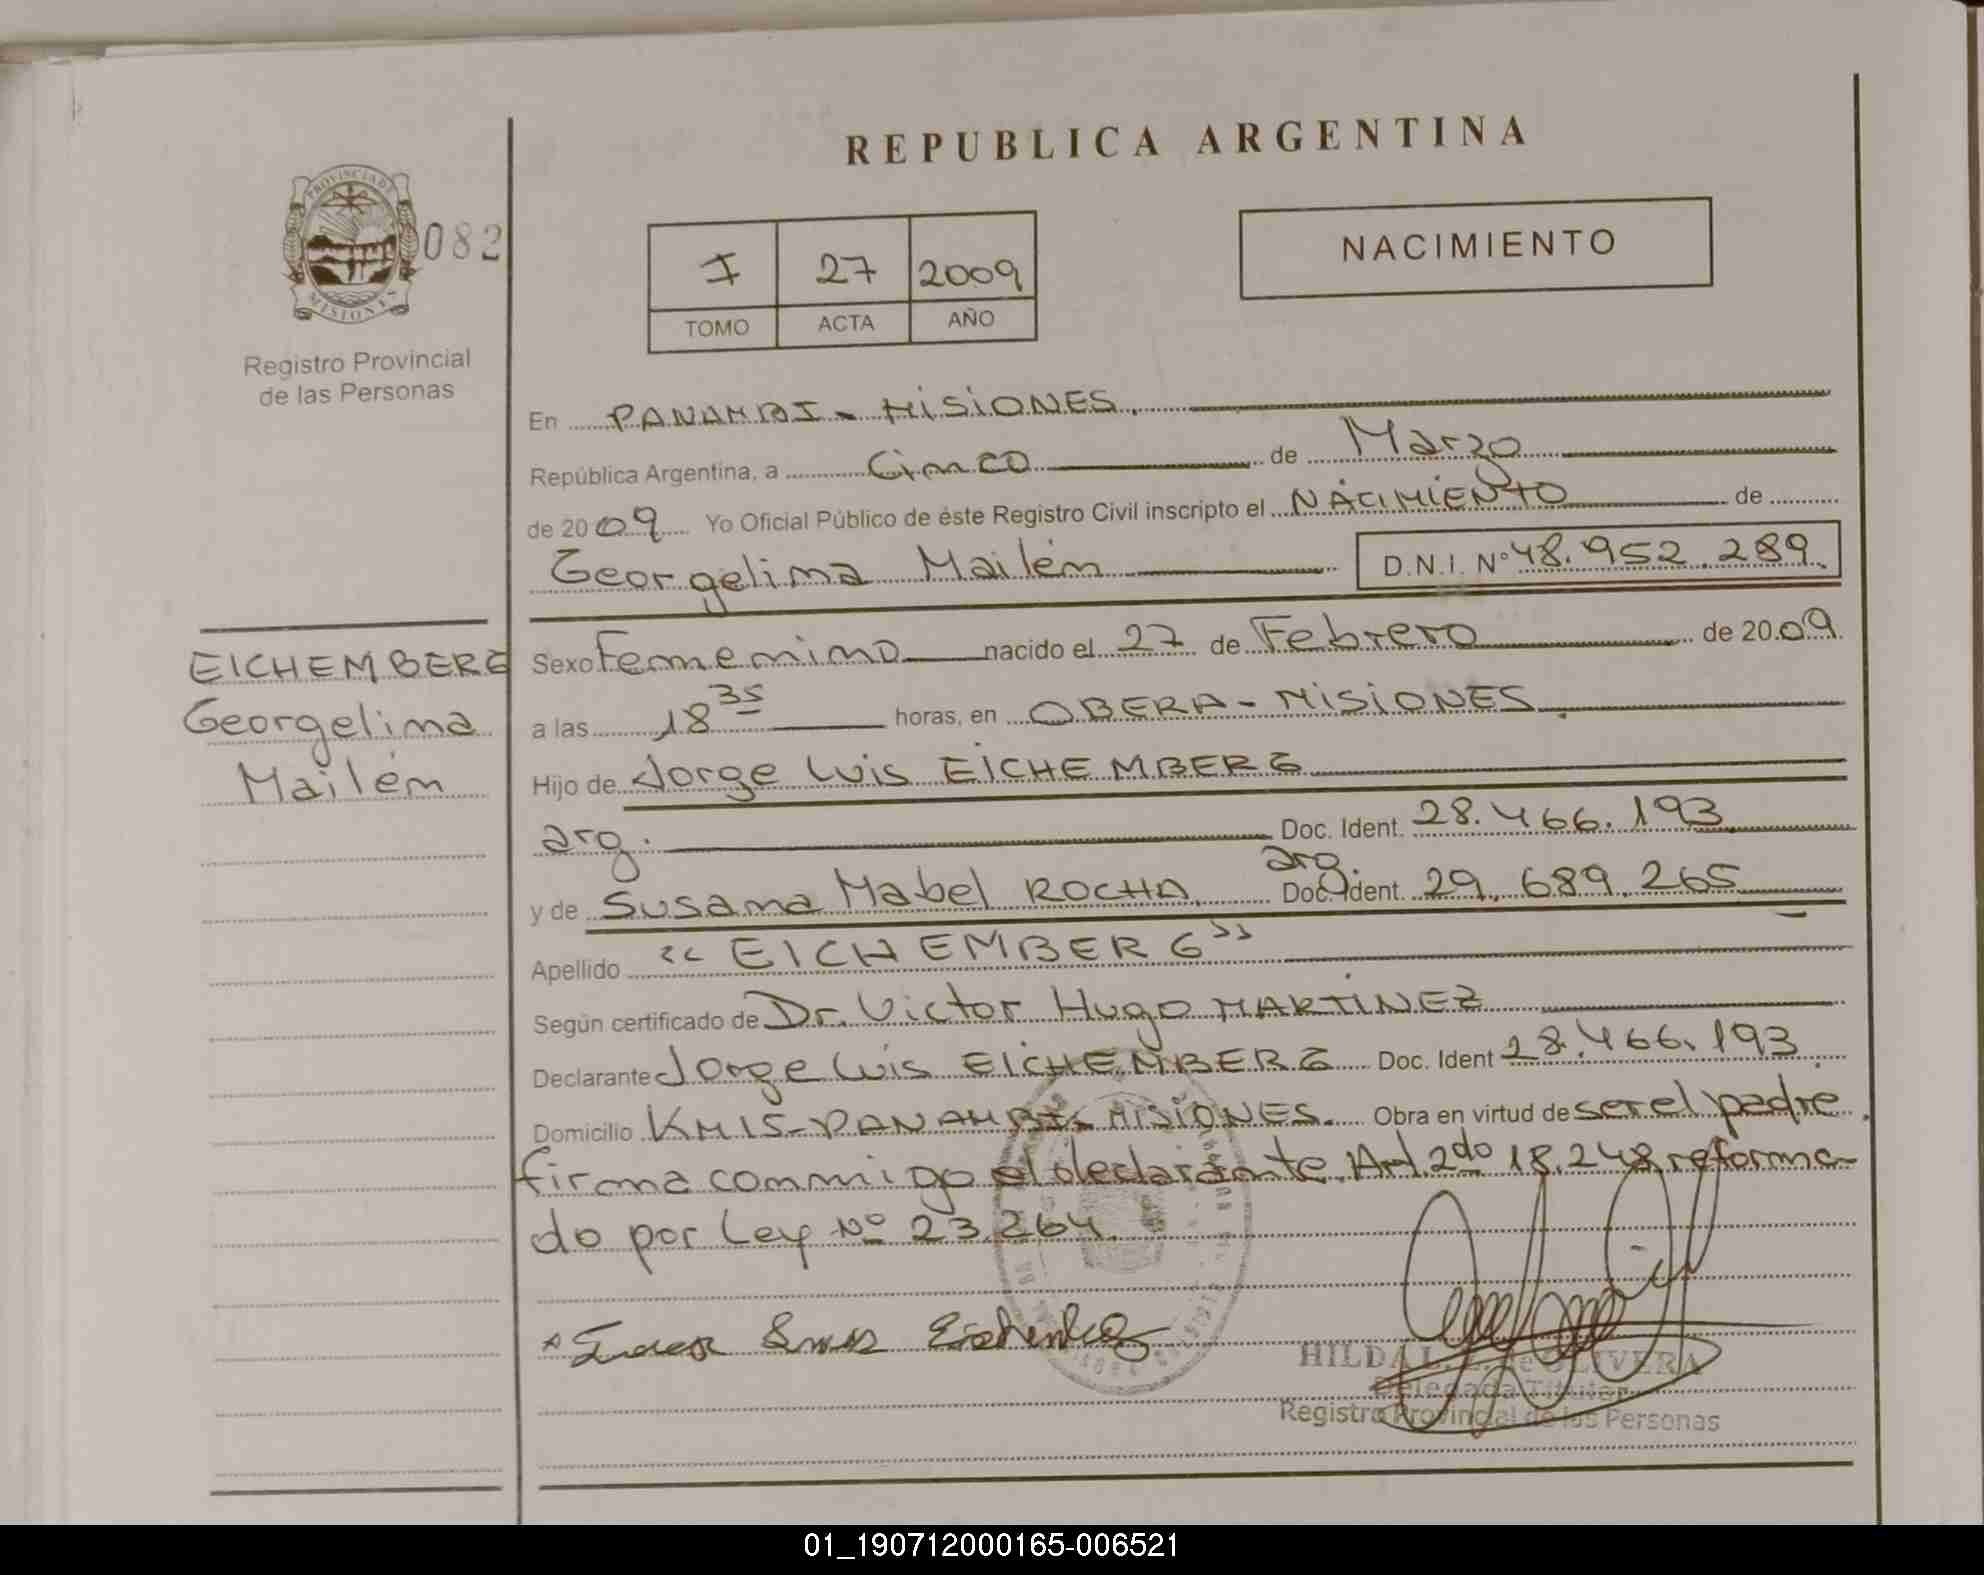 REPUBLICA ARGENTINA
PROVINCIA DE
MISIONES
082
Registro Provincial
de las Personas
I 27 2009
TOMO ACTA AÑO
NACIMIENTO
En PANAMBI - MISIONES.
República Argentina, a Cinco de Marzo
de 2009 Yo Oficial Público de éste Registro Civil inscripto el NACIMIENTO de
Georgelina Mailén D.N.I. Nº 48.952.289.
EICHEMBERG
Georgelina
Mailén
Sexo Femenino nacido el 27 de Febrero de 2009.
a las 18 35 horas, en OBERA - MISIONES.
Hijo de Jorge Luis EICHEMBERG
arg. Doc. Ident. 28.466.193
y de Susana Mabel ROCHA, arg. Doc. Ident. 29.689.265
Apellido "EICHEMBERG"
Según certificado de Dr. Victor Hugo MARTINEZ
Declarante Jorge Luis EICHEMBERG Doc. Ident 28.466.193
Domicilio KM15-PANAMBI-MISIONES. Obra en virtud de ser el padre,
firma conmigo el declarante. Art 2do 18.248 reforma-
do por Ley Nº 23.264.
HILDA L. de OLIVERA
Delegada Titular
Registro Provincial de las Personas
01_190712000165-006521